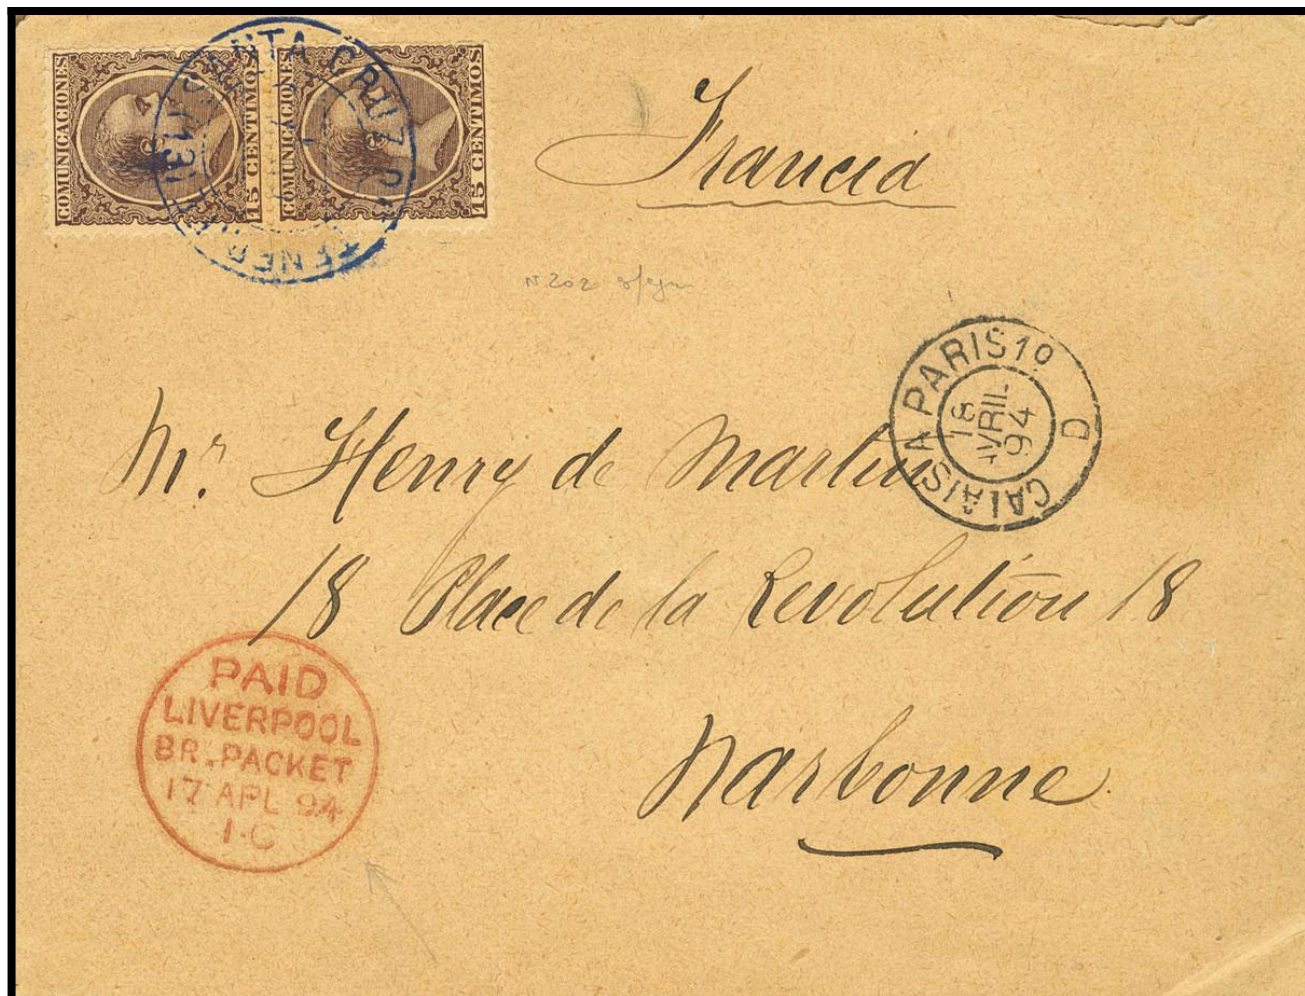 COMUNICACIONES
15 CENTIMOS
COMUNICACIONES
15 CENTIMOS
SANTA CRUZ DE TENERIFE
Francia
N 202
CALAIS A PARIS 1º
D
18
AVRIL
94
Mr. Henry de Martin
18 Place de la Revolution 18
Narbonne
PAID
LIVERPOOL
BR. PACKET
17 APL 94
1·C